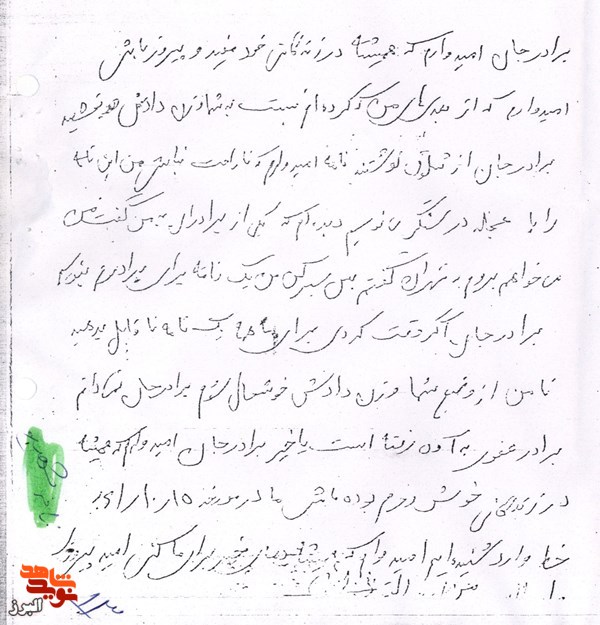 برادر جان امیدوارم که همیشه در زندگانی خود مفید و پیروز باشی
امیدوارم که از بدی های من که کرده ام نسبت به شما و زن داداش
برادر جان از نوشتن نامه امیدوارم که ناراحت نباشی من این نامه
را با عجله در سنگر می نویسم دیده ام که یکی از برادران به من گفت من
می خواهم بروم به تهران گفتم پس صبر کن من یک نامه برای برادرم بنویسم
برادر جان اگر وقت کردی برای ما یک نامه بدهید
تا من از وضع شما و زن داداش خوشحال شوم برادر جان نمی دانم
برادر به رفته است یا خیر برادر جان امیدوارم که همیشه
در زندگانی خوش و خرم بوده باشی ما در مورخه
خط وارد شده ایم امیدوارم که برای ما کنی امید پیروز
شاهد
نوید
البرز